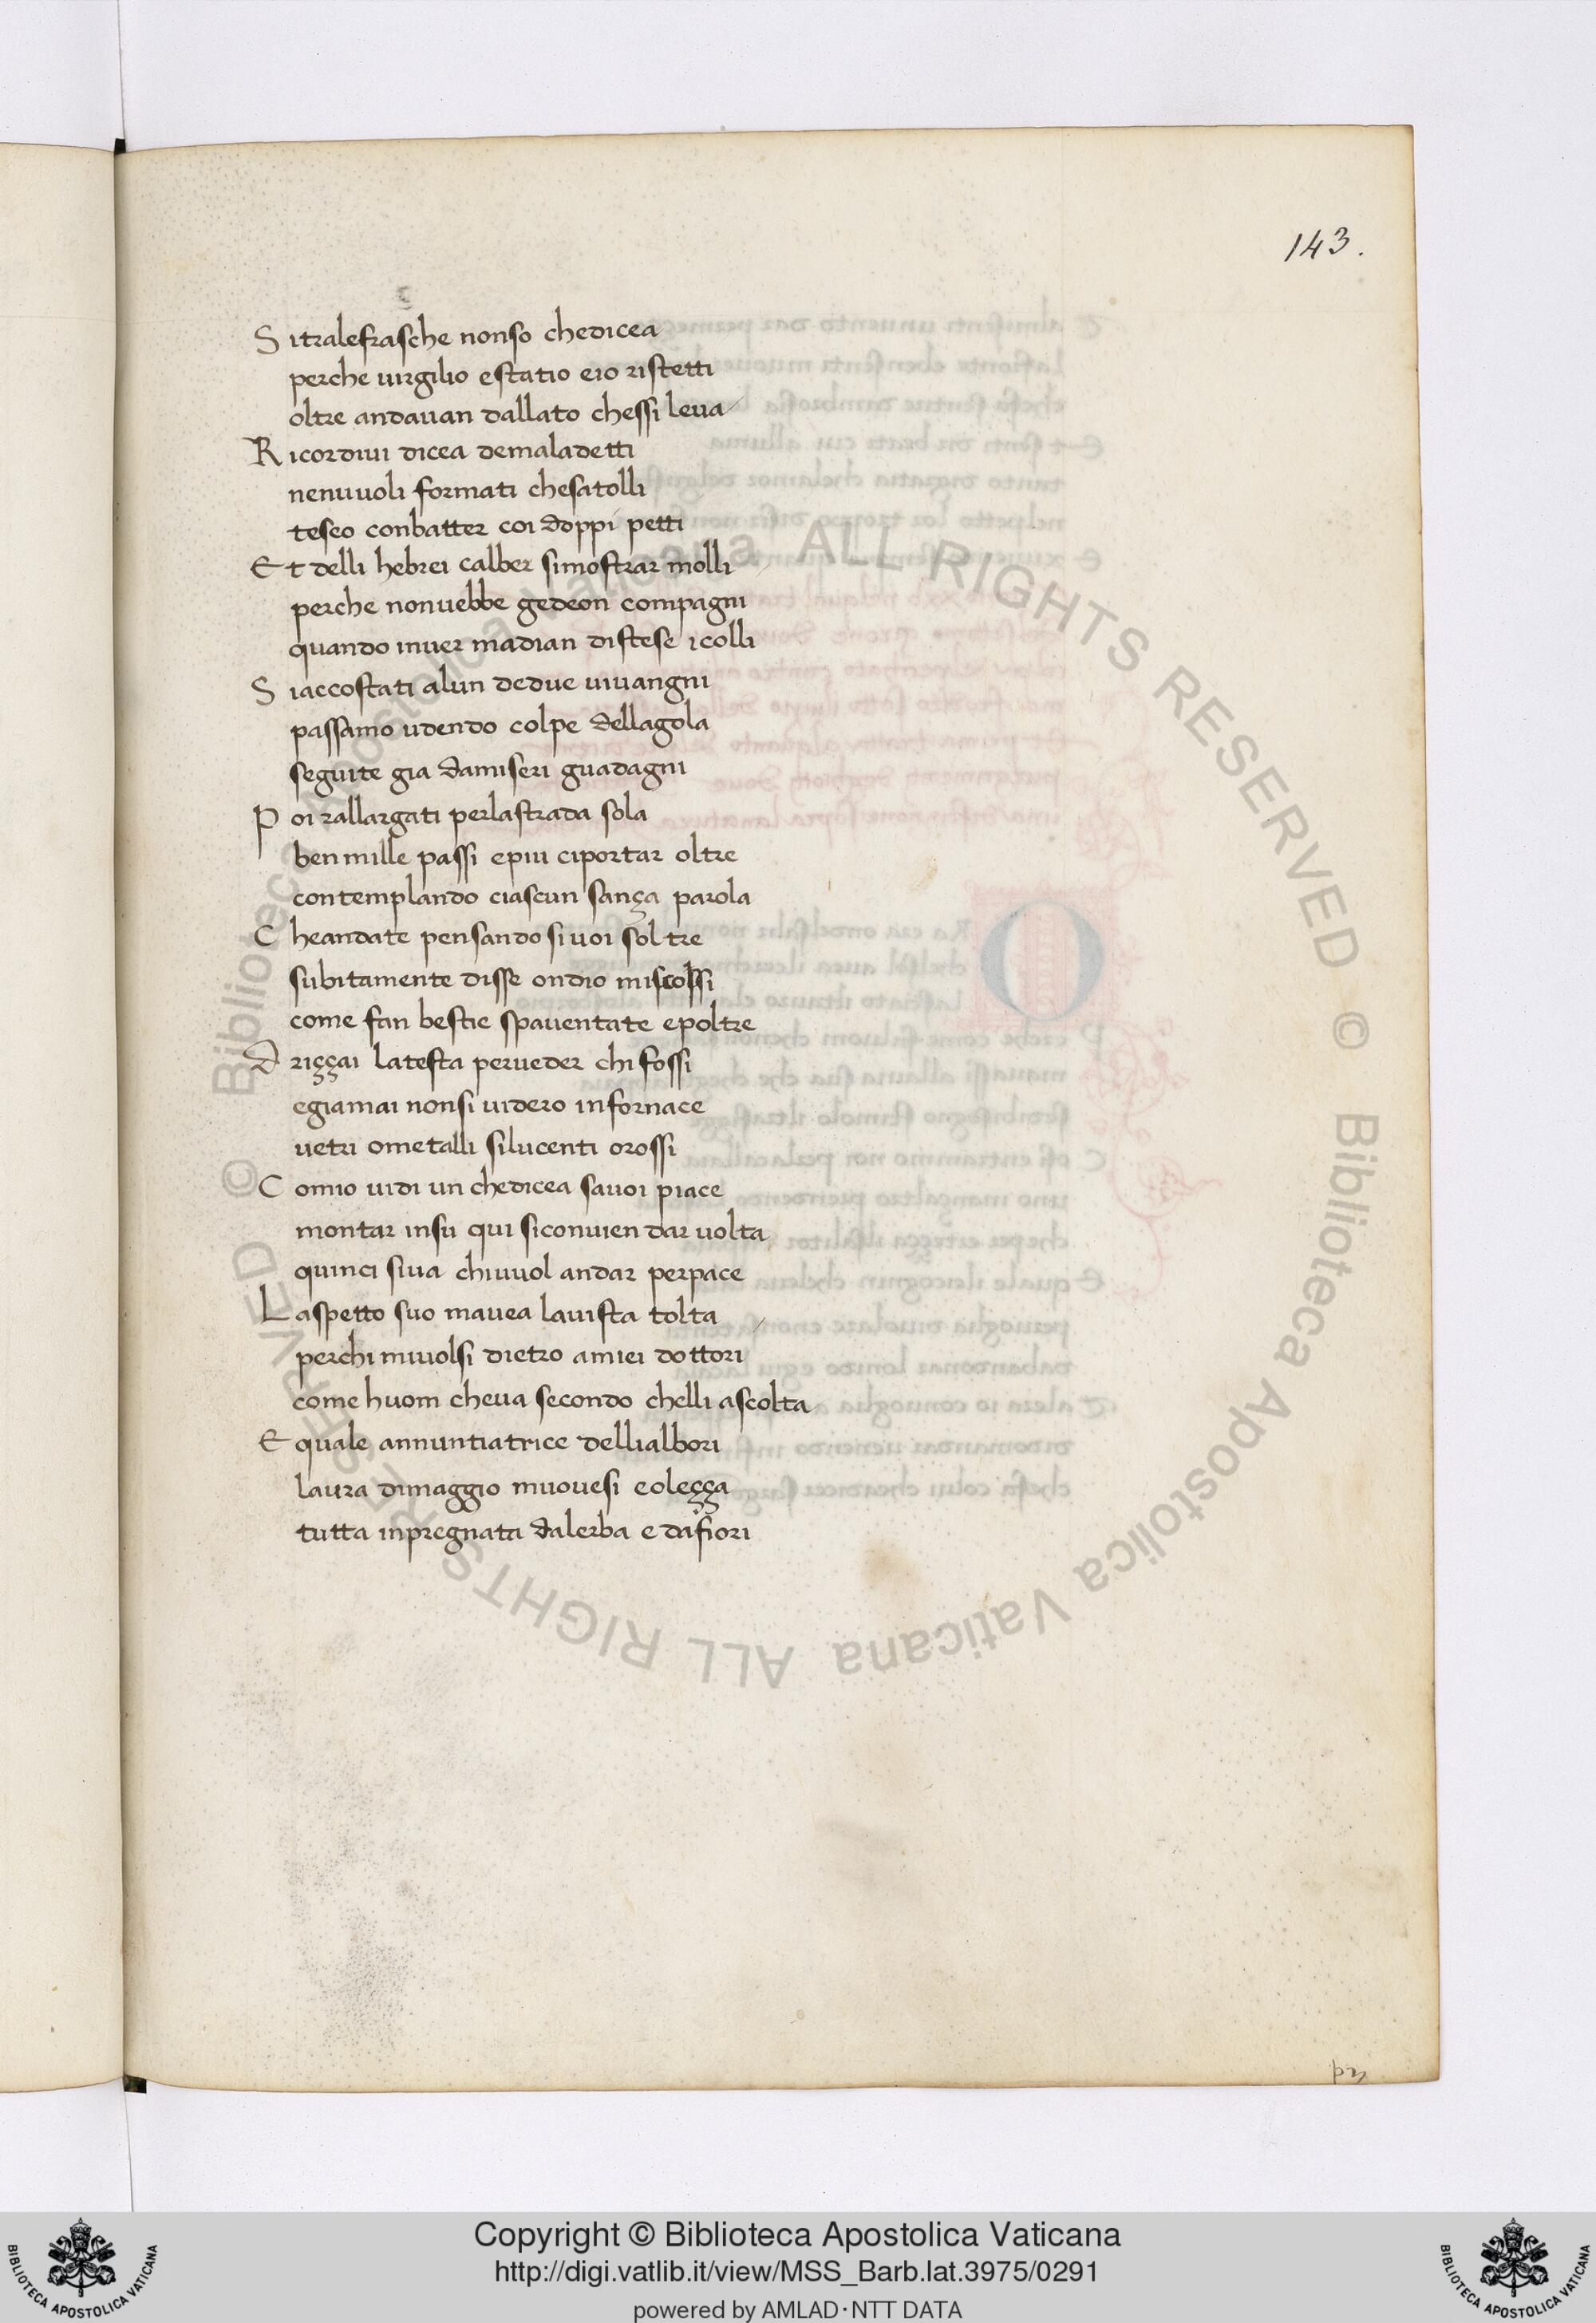 143.
S itralefrasche nonso chedicea
perche uirgilio estatio eio ristetti
oltre andauan dallato chessi leua
R icordiui dicea demaladetti
nenuuoli formati chesatolli
teseo conbatter coi doppi petti
Et delli hebrei calber simostrar molli
perche nonuebbe gedeon compagni
quando inuer madian distese icolli
S iaccostati alun dedue uiuangni
passamo udendo colpe dellagola
seguite gia damiseri guadagni
P oi rallargati perlastrada sola
ben mille passi epiu ciportar oltre
contemplando ciascun sança parola
C heandate pensando siuoi sol tre
subitamente disse ondio miscossi
come fan bestie spauentate epoltre
D riççai latesta perueder chi fossi
egiamai nonsi uidero infornace
uetri ometalli silucenti orossi
C omio uidi un chedicea sauoi piace
montar insu qui siconuien dar uolta
quinci siua chiuuol andar perpace
L aspetto suo mauea lauista tolta
perchi miuolsi dietro amiei dottori
come huom cheua secondo chelli ascolta
E quale annuntiatrice dellialbori
laura dimaggio muouesi eoleçça
tutta inpregnata dalerba e dafiori
Biblioteca Apostolica Vaticana ALL RIGHTS RESERVED ©
Biblioteca Apostolica Vaticana ALL RIGHTS RESERVED ©
Copyright © Biblioteca Apostolica Vaticana
http://digi.vatlib.it/view/MSS_Barb.lat.3975/0291
powered by AMLAD·NTT DATA
BIBLIOTECA APOSTOLICA VATICANA
BIBLIOTECA APOSTOLICA VATICANA